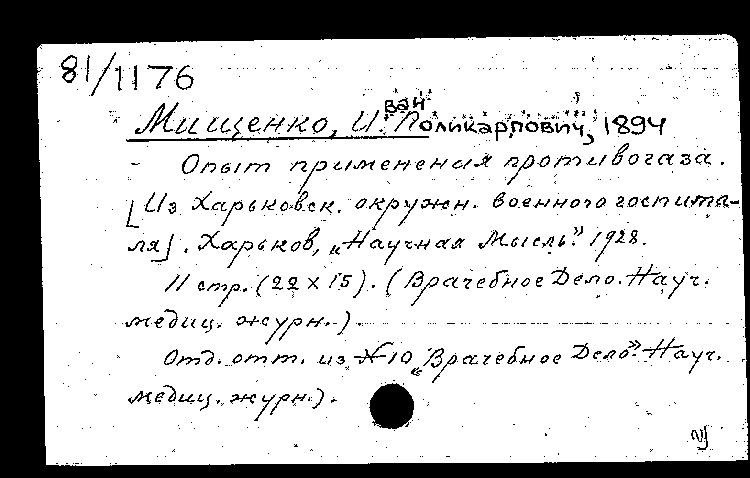 81/1176
Мищенко, Иван Поликарпович, 1894
Опыт применения противогаза.
[Из Харьковск. окружн. военного госпита-
ля]. Харьков, „Научная Мысль". 1928.
11 стр. (22 x 15). (Врачебное Дело. Науч.
медиц. журн.)
Отд. отт. из № 10 „Врачебное Дело". Науч.
медиц. журн.).